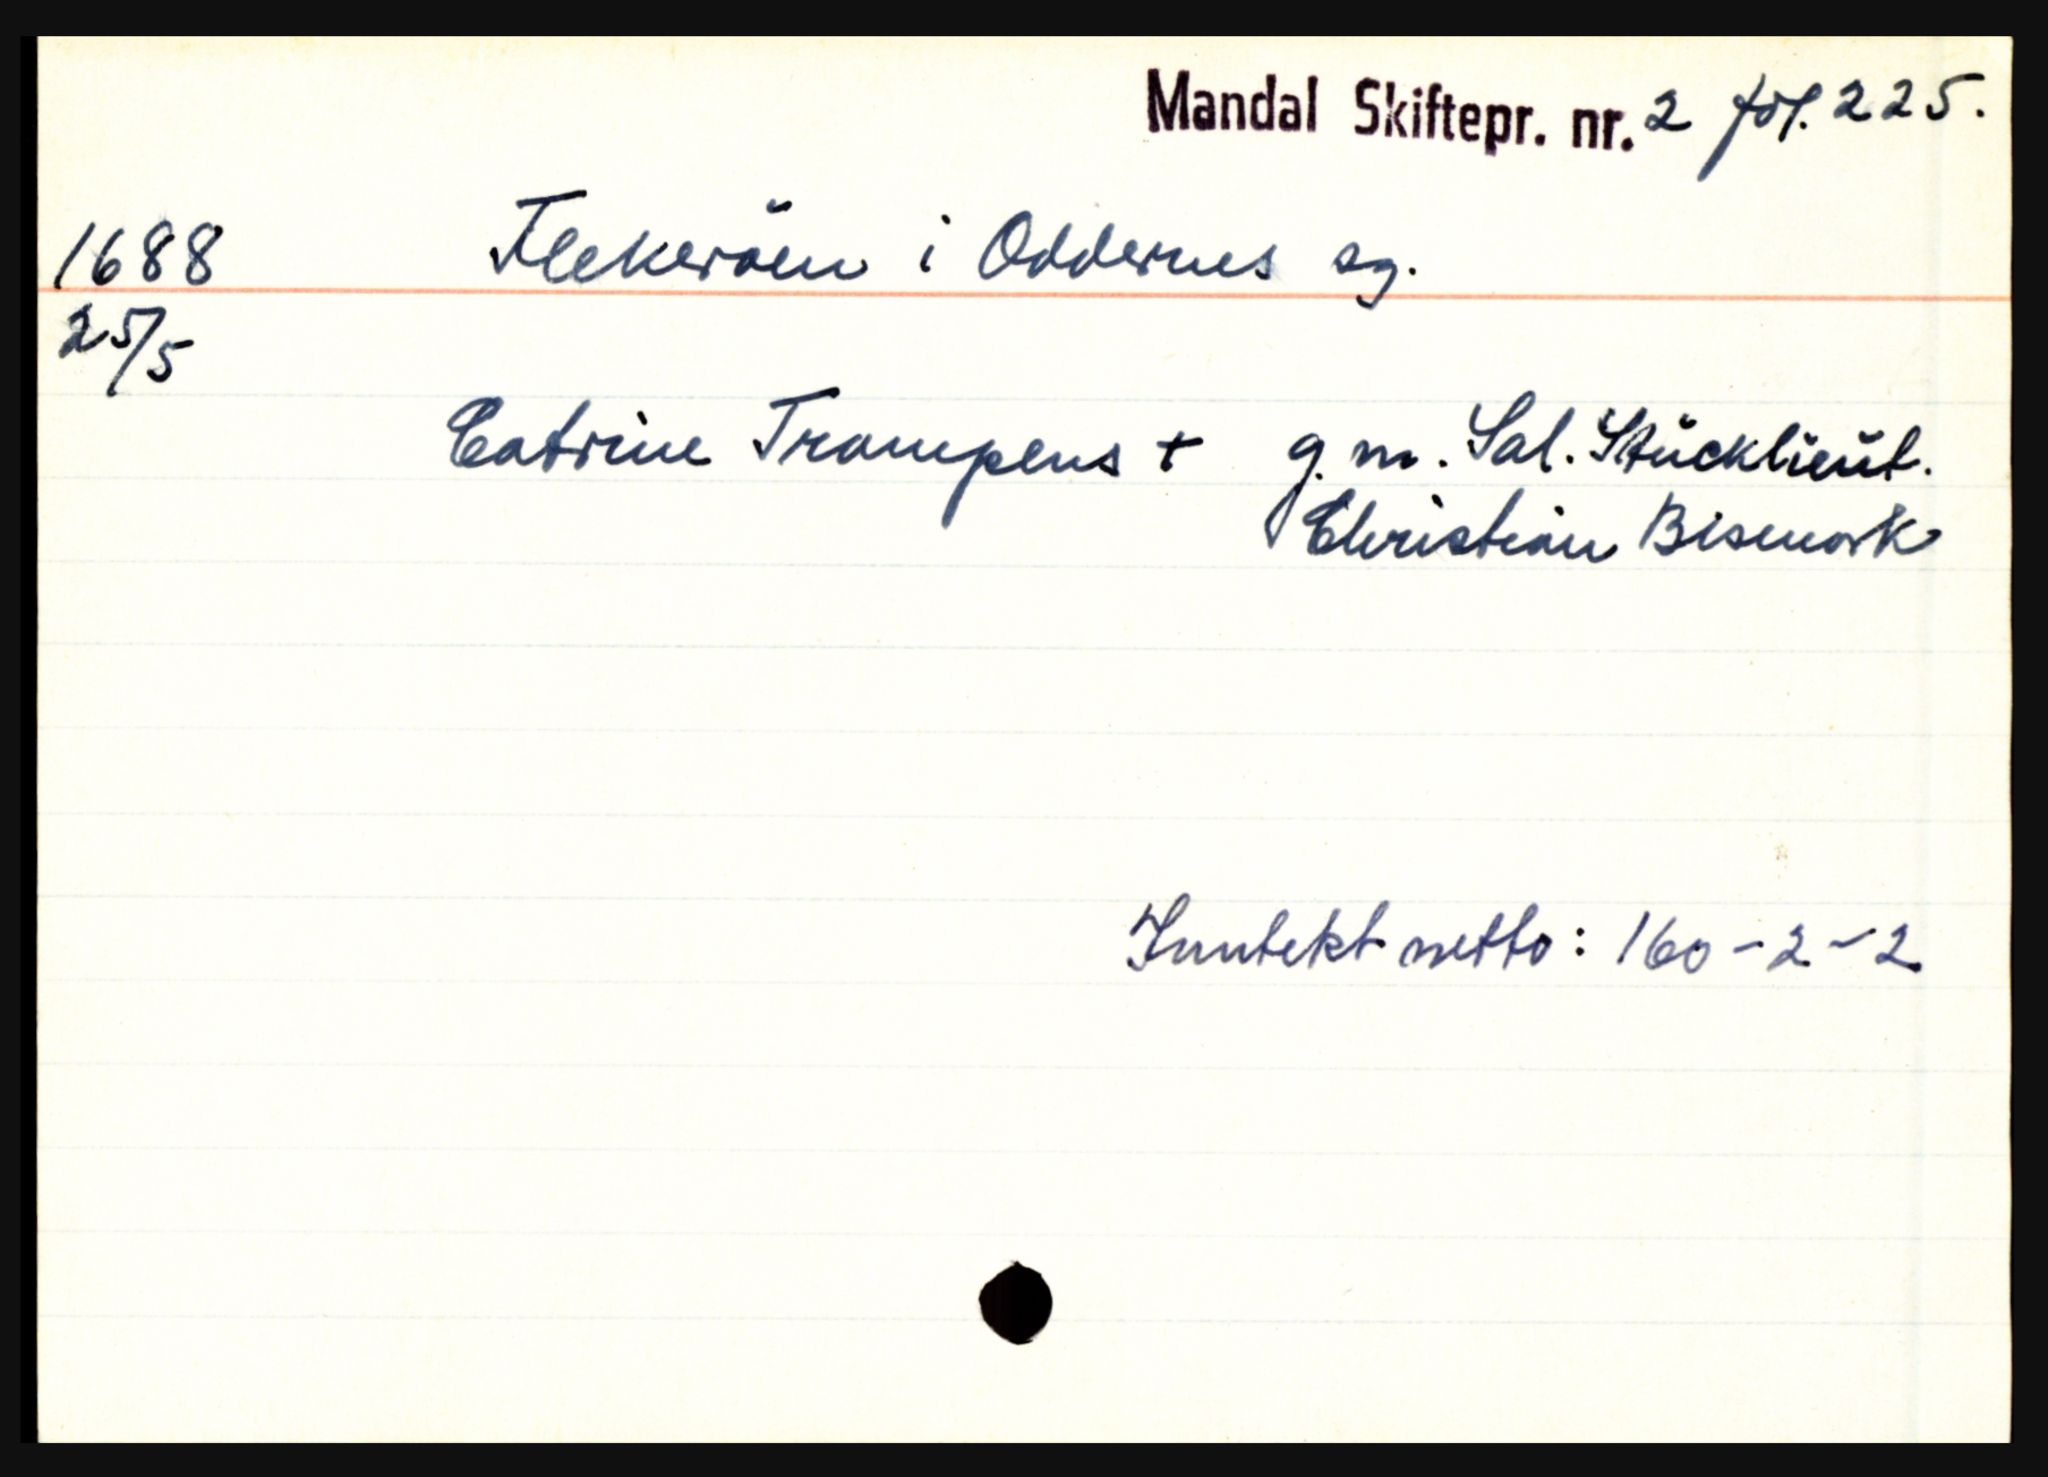 Mandal Skiftepr. nr. 2 fol. 225.
1688 Flekeröen i Oddernes sg.
25/5
Catrine Trampens + g. m. Sal. Stücklieut.
Christian Bismark
Inntekt netto: 160-2-2